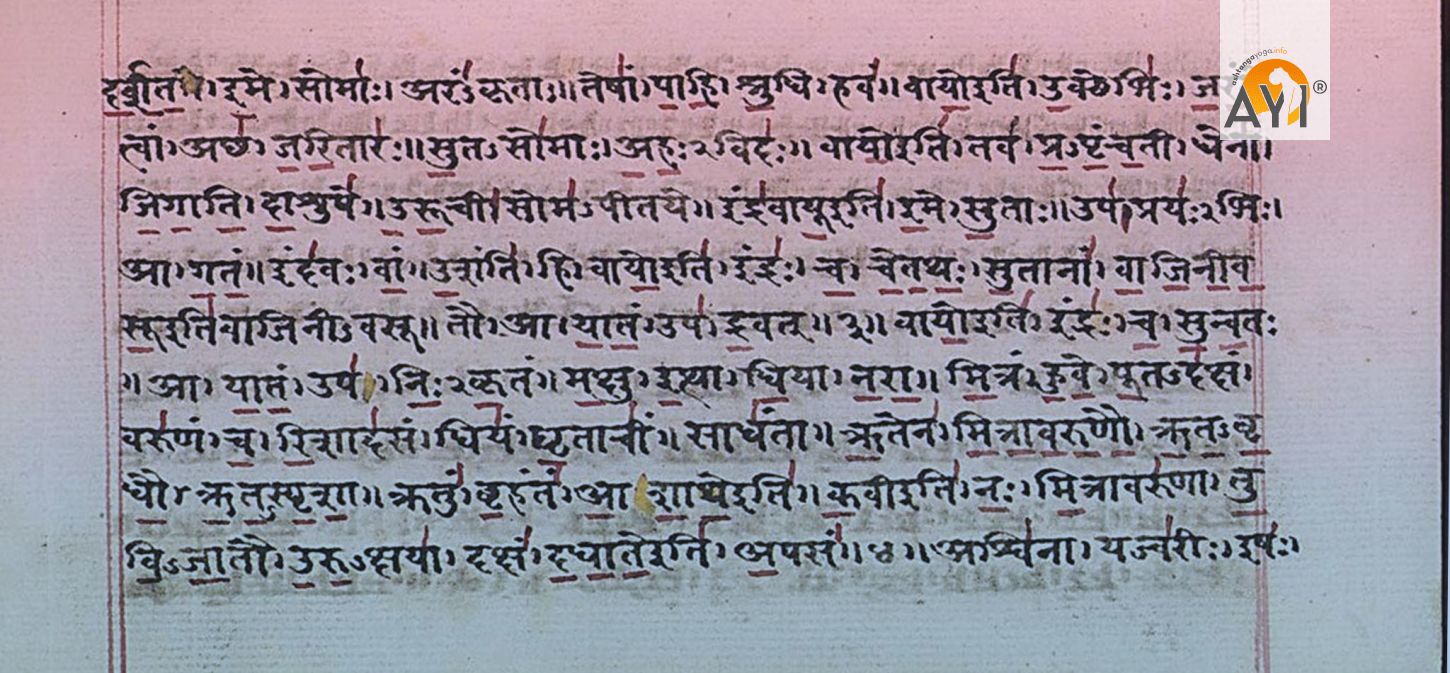 दर्शतं। इमे। सोमाः। अरंऽकृताः॥ तेषां। पाहि। श्रुधि। हवं॥ वायोइति। उक्थेभिः। ज
त्वां। अच्छ। जरितारः॥ सुतऽसोमाः। अहः२विदः॥ वायोइति। तव। प्रऽपृंचती। धेना।
जिगाति। दाशुषे॥ उरूची। सोमऽपीतये॥ इंद्रवायूइति। इमे। सुताः॥ उप। प्रयः२भिः।
आ। गतं॥ इंदवः। वां॥ उशंति। हि। वायोइति। इंद्रः। च। चेतथः। सुतानां। वाजिनीव
सूइतिवाजिनीऽवसू॥ तौ। आ। यातं। उप। द्रवत्॥ ३॥ वायोइति। इंद्रः। च। सुन्वतः
॥ आ। यातं। उप। निः२कृतं॥ मक्षु। इत्था। धिया। नरा॥ मित्रं। हुवे। पूतऽदक्षं।
वरुणं। च। रिशादसं। धियं। घृताचीं॥ साधंता॥ ऋतेन। मित्रावरुणौ। ऋतऽवृ
धौ। ऋतऽस्पृशा॥ क्रतुं। बृहंतं। आशाथेइति॥ कवीइति। नः। मित्रावरुणा। तु
विऽजातौ। उरुऽक्षया। दक्षं। दधातेइति। अपसं॥ ४॥ अश्विना। यज्वरीः। इषः।
ashtangayoga.info
AYI®